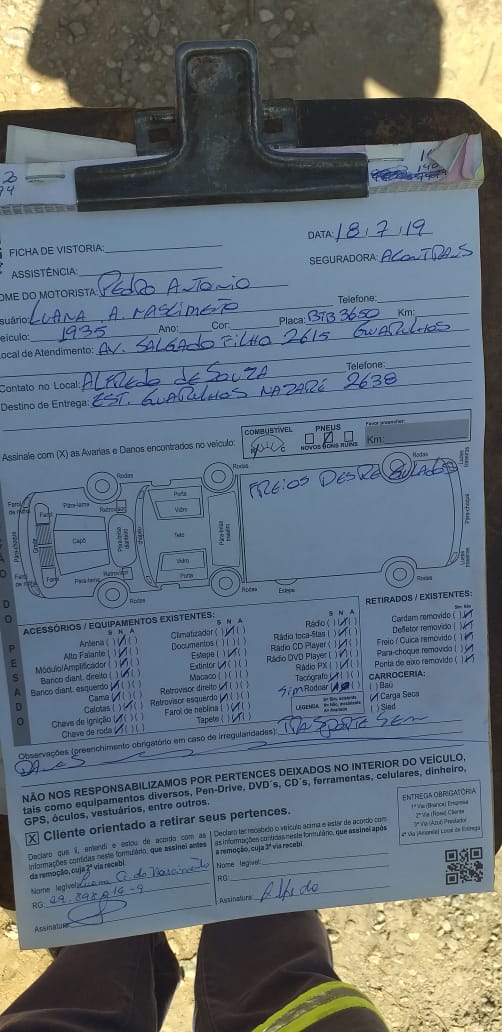 FICHA DE VISTORIA:
DATA: 18.7.19
ASSISTÊNCIA:
SEGURADORA: ACONTRANS
OME DO MOTORISTA: PEDRO ANTONIO
suário: LUANA A. NASCIMENTO Telefone:
eículo: 1935 Ano: Cor: Placa: BTB 3650 Km:
ocal de Atendimento: AV. SALGADO FILHO 2615 GUARULHOS
Contato no Local: ALFREDO DE SOUZA Telefone:
Destino de Entrega: EST. GUARULHOS NAZARÉ 2638
Assinale com (X) as Avarias e Danos encontrados no veículo:
COMBUSTÍVEL
PNEUS
NOVOS BONS RUINS
Favor preencher:
Km:
FREIOS DESREGULADOS
Rodas
Rodas
Rodas
Farol
Farol de milha
Pára-choque
Grade
Farol
Pára-lama
Capô
Retrovisor
Pára-brisa dianteiro
Porta
Vidro
Teto
Vidro
Porta
Pára-brisa traseiro
Luzes traseiras
Pára-choque
Luzes traseiras
Farol
Farol de milha
Pára-lama
Retrovisor
Rodas
Rodas
Estepe
Rodas
DO PESADO
ACESSÓRIOS / EQUIPAMENTOS EXISTENTES:
S N A
Antena
Alto Falante
Módulo/Amplificador
Banco diant. direito
Banco diant. esquerdo
Cama
Calotas
Chave de ignição
Chave de roda
S N A
Climatizador
Documentos
Estepe
Extintor
Macaco
Retrovisor direito
Retrovisor esquerdo
Farol de neblina
Tapete
S N A
Rádio
Rádio toca-fitas
Rádio CD Player
Rádio DVD Player
Rádio PX
Tacógrafo
Sim Rodoar
LEGENDA
S= Sim, existente
N= Não, inexistente
A= Avariado
RETIRADOS / EXISTENTES:
Sim Não
Cardam removido
Defletor removido
Freio / Cuica removido
Para-choque removido
Ponta de eixo removido
CARROCERIA:
Baú
Carga Seca
Sied
Observações (preenchimento obrigatório em caso de irregularidades): TRANSPORTE SEM
DANOS
NÃO NOS RESPONSABILIZAMOS POR PERTENCES DEIXADOS NO INTERIOR DO VEÍCULO,
tais como equipamentos diversos, Pen-Drive, DVD´s, CD´s, ferramentas, celulares, dinheiro,
GPS, óculos, vestuários, entre outros.
X Cliente orientado a retirar seus pertences.
Declaro que li, entendi e estou de acordo com as
informações contidas neste formulário, que assinei antes
da remoção, cuja 2ª via recebi.
Nome legível: Luana A. do Nascimento
RG:
Assinatura:
Declaro ter recebido o veículo acima e estar de acordo com as
informações contidas neste formulário, que assinei após
a remoção, cuja 3ª via recebi.
Nome legível:
RG:
Assinatura: Alfredo
ENTREGA OBRIGATÓRIA
1ª Via (Branca) Empresa
2ª Via (Rosa) Cliente
3ª Via (Azul) Prestador
4ª Via (Amarela) Local de Entrega